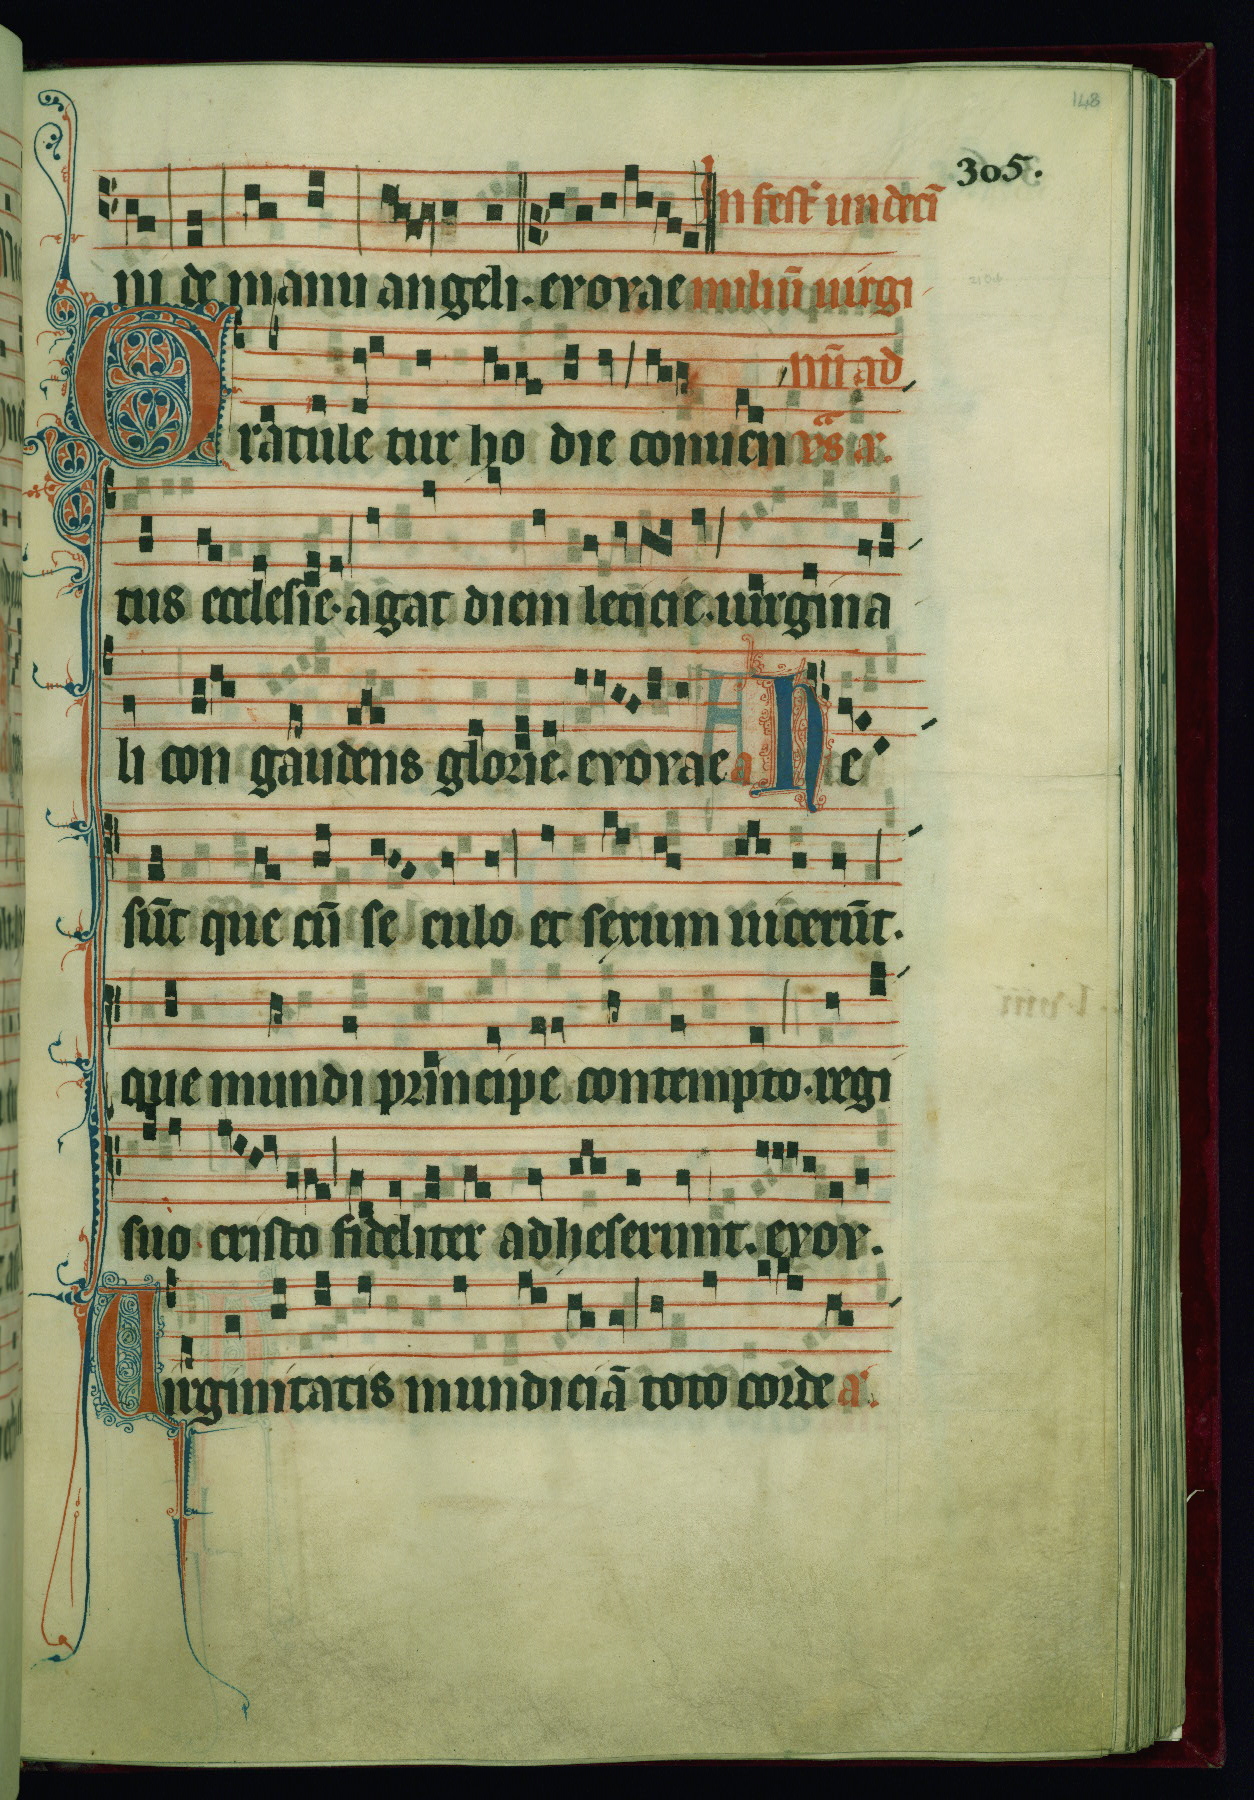 148
305.
In fest' undeci
ni de manu angeli. evovae miliū uirgi
nū ad
Gratule tur ho die conuen vs̄ a.
tus ecclesie. agat diem leticie. uirgina
li con gaudens glorie. evovae a He
sūt que cū se culo et sexum uicerūt.
que mundi principe contempto. regi
suo cristo fideliter adheserunt. evov.
Uirginitatis mundiciā toto corde a.